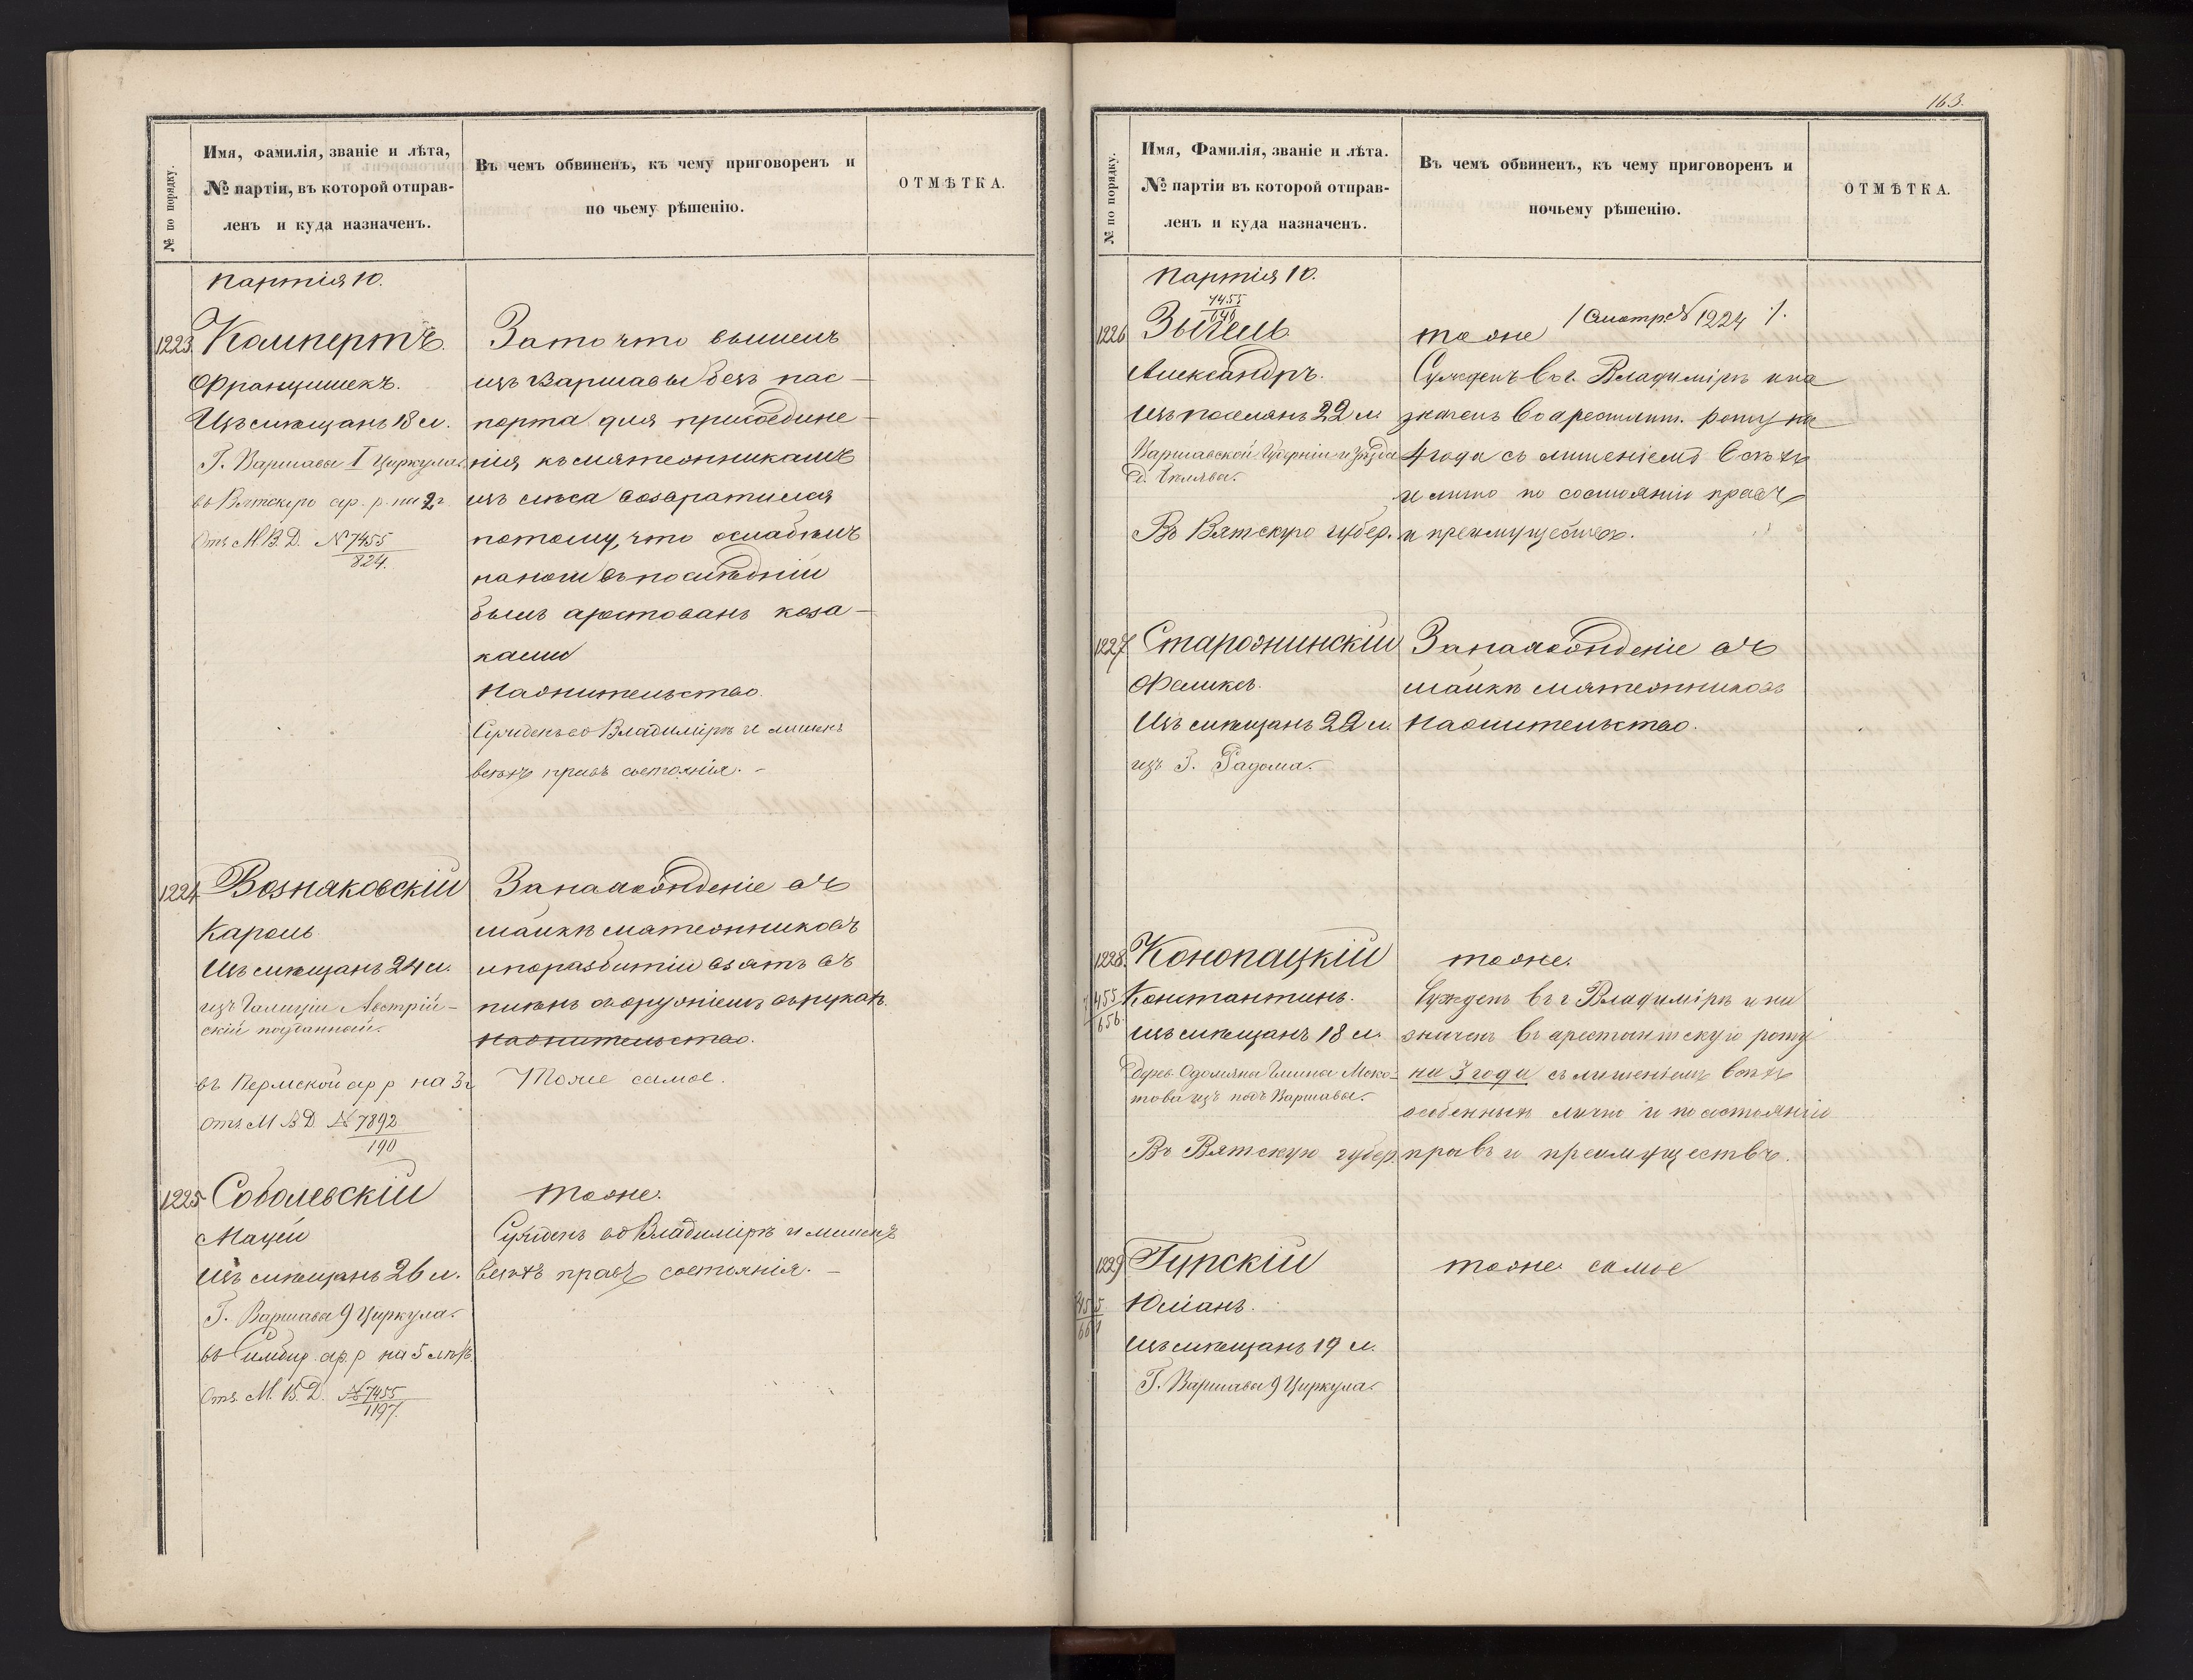 № по порядку.
Имя, Фамилія, званіе и лѣта,
№ партіи, въ которой отправ-
ленъ и куда назначенъ.
Въ чемъ обвиненъ, къ чему приговоренъ и
по чьему рѣшенію.
ОТМѢТКА.
Партія 10.
1223. Кампертъ.
Францишекъ.
Изъ мѣщанъ 18 л.
Г. Варшавы I Циркула.
въ Вятскую ар. р. на 2 г.
Отъ М.В.Д. № 7455
824.
За то что вышелъ
изъ Варшавы безъ пас-
порта для присоедине-
нія къ мятежникамъ
изъ лѣса возвратился
потому, что ослабѣлъ
на ноги въ послѣдній
былъ арестованъ коза-
ками
На жительство.
Сужденъ во Владимірѣ и лишенъ
всѣхъ правъ состоянія. -
1224. Возняковскій
Кароль.
Изъ мѣщанъ 24 л.
изъ Галиціи Австрій-
скій подданный.
въ Пермской ар р на 3 г
Отъ М В Д № 7892
190
За нахожденіе въ
шайкѣ мятежниковъ
и по разбитіи взятъ въ
плѣнъ съ оружіемъ въ рукахъ.
На жительство.
Тоже самое.
1225 Соболевскій
Мацей
Изъ мѣщанъ 26 л.
Г. Варшавы 9 Циркула.
въ Симбир. ар. р на 5 лѣтъ.
Отъ. М. В. Д. № 7455
1197.
тоже.
Сужденъ во Владимірѣ и лишенъ
всѣхъ правъ состоянія. -
163.
№ по порядку.
Имя, Фамилія, званіе и лѣта.
№ партіи въ которой отправ-
ленъ и куда назначенъ.
Въ чемъ обвиненъ, къ чему приговоренъ и
почьему рѣшенію.
ОТМѢТКА.
Партія 10.
7455
640
1226 Зыгель
Александръ.
Изъ поселянъ 22 л.
Варшавской Губерніи и Уѣзда
Въ Вятскую губер.
тоже / Смотр. № 1224 /.
Сужденъ въ г. Владимірѣ и на
значенъ въ арестант. роту на
4 года съ лишеніемъ всѣхъ
и лично по состоянію правъ
и преимуществъ.
1227 Старожинскій
Феликсъ.
Изъ мѣщанъ 22 л.
изъ Г. Радома.
За нахожденіе въ
шайкѣ мятежниковъ
На жительство.
1228. Конопацкій
7455
656.
Константинъ.
Изъ мѣщанъ 18 л.
Гмина Моко-
това изъ подъ Варшавы.
Въ Вятскую губер.
тоже.
Сужденъ въ г Владимірѣ и на
значенъ въ арестантскую роту
на 3 года съ лишеніемъ всѣхъ
особенныхъ лично и по состоянію
правъ и преимуществъ.
1229 Гурскій
7455
661
Юліанъ.
Изъ мѣщанъ 19 л.
Г. Варшавы 9 Циркула.
тоже самое